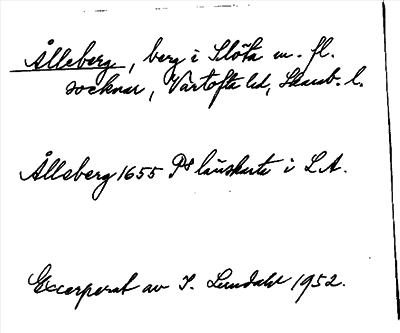 Ålleberg, berg i Slöta m. fl.
socknar, Vartofta hd, Skarab. l.
Ålleberg 1655 P8 länskarta i L.A.
Excerperat av I. Lundahl 1952.